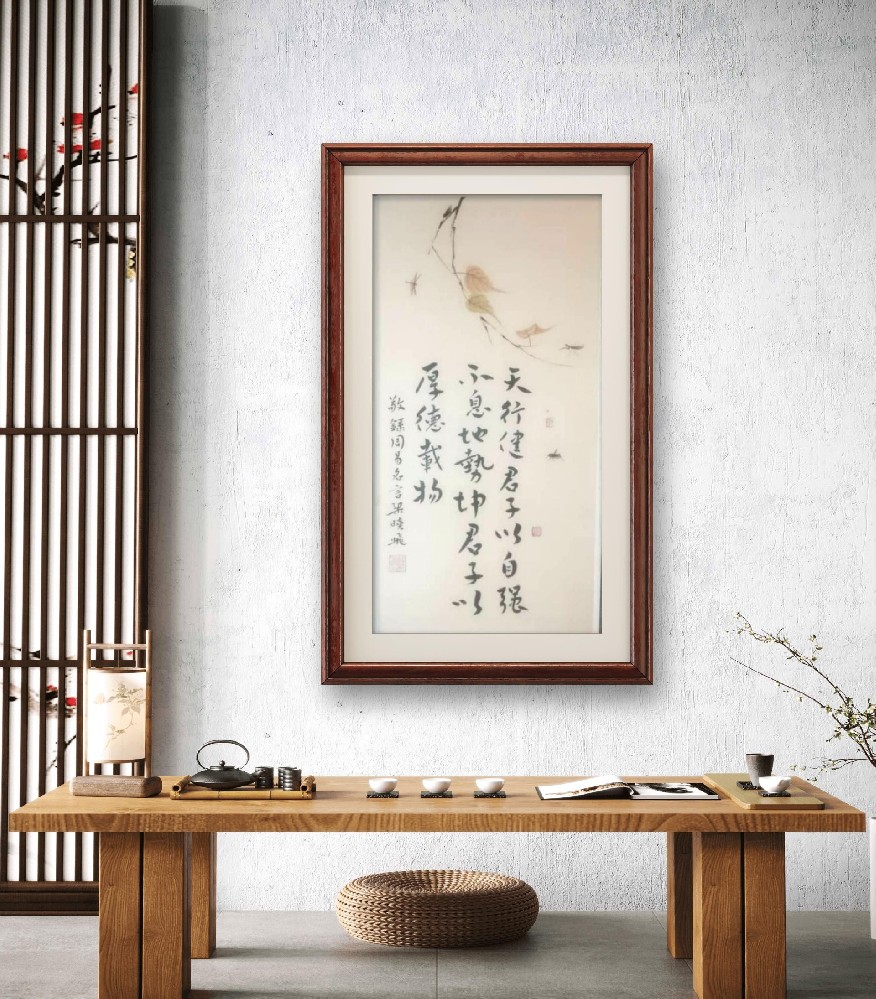 天行健君子以自强
不息地勢坤君子以
厚德載物
敬錄周易名言梁曉